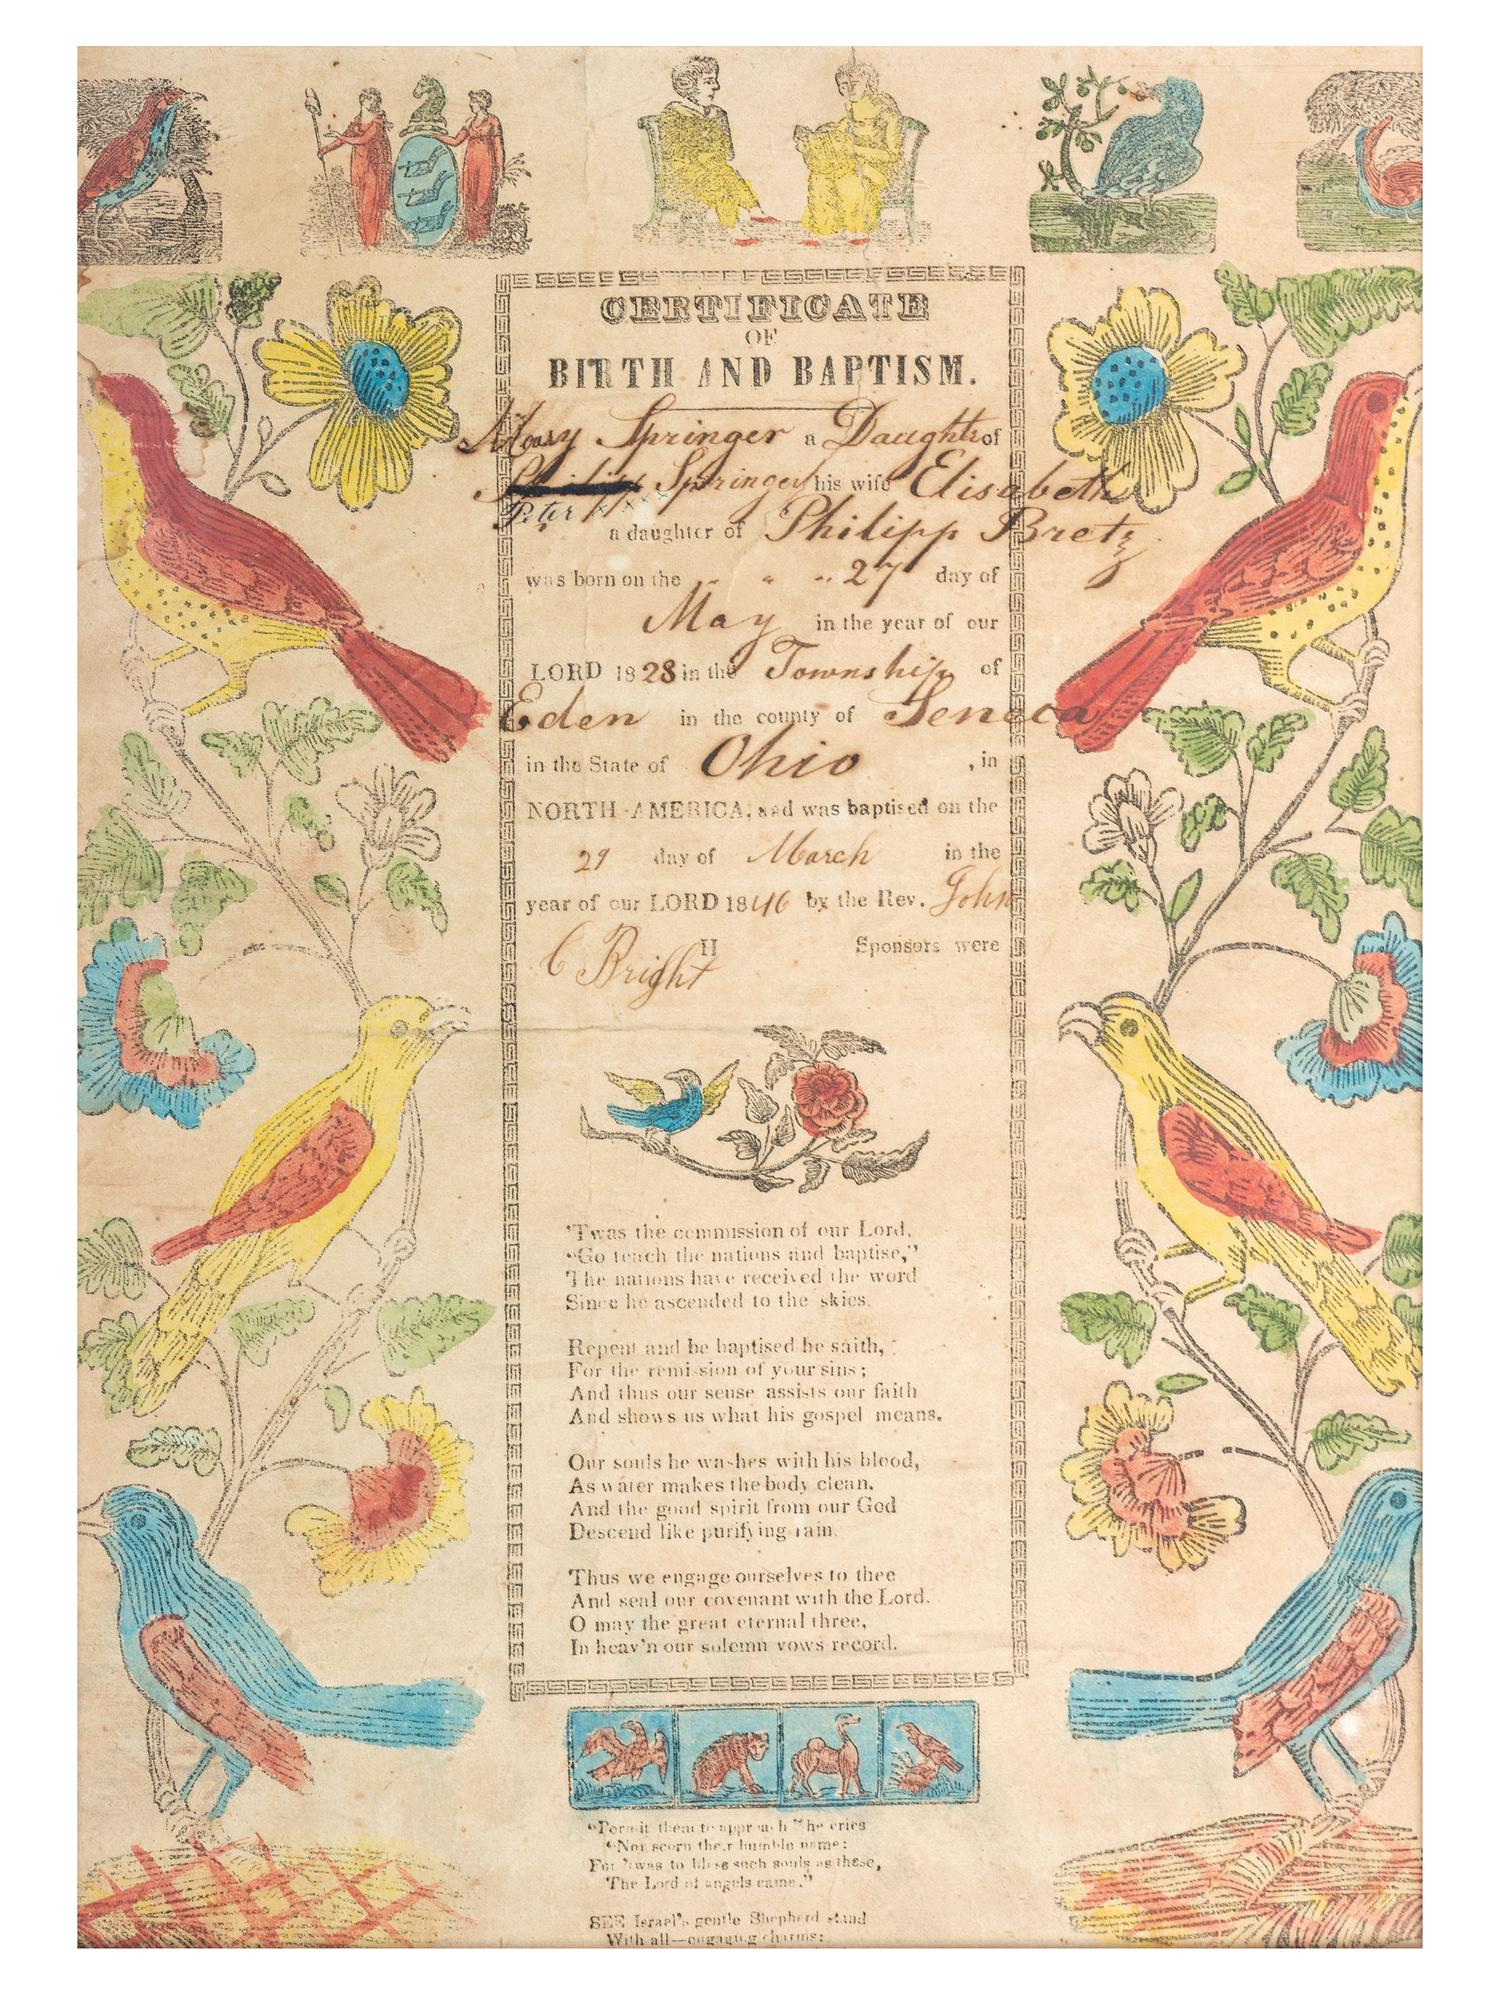 CERTIFICATE
OF
BIRTH AND BAPTISM.
Springer a Daughtr of
Springer his wife Elisabeth
Peter × × ×
a daughter of Philipp Bretz
was born on the " " " 27 day of
May in the year of our
LORD 1828 in the Township of
Eden in the county of Seneca
in the State of Ohio , in
NORTH AMERICA, and was baptised on the
29 day of March in the
year of our LORD 1846 by the Rev. John
C Bright H Sponsors were
'Twas the commission of our Lord,
"Go teach the nations and baptise,"
The nations have received the word
Since he ascended to the skies.
Repent and be baptised he saith,
For the remission of your sins;
And thus our sense assists our faith
And shows us what his gospel means.
Our souls he washes with his blood,
As water makes the body clean.
And the good spirit from our God
Descend like purifying rain.
Thus we engage ourselves to thee
And seal our covenant with the Lord.
O may the great eternal three,
In heav'n our solemn vows record.
"Permit them to approach" he cries
"Nor scorn their humble name:
For 'twas to bless such souls as these,
The Lord of angels came."
SEE Israel's gentle Shepherd stand
With all—engaging charms: